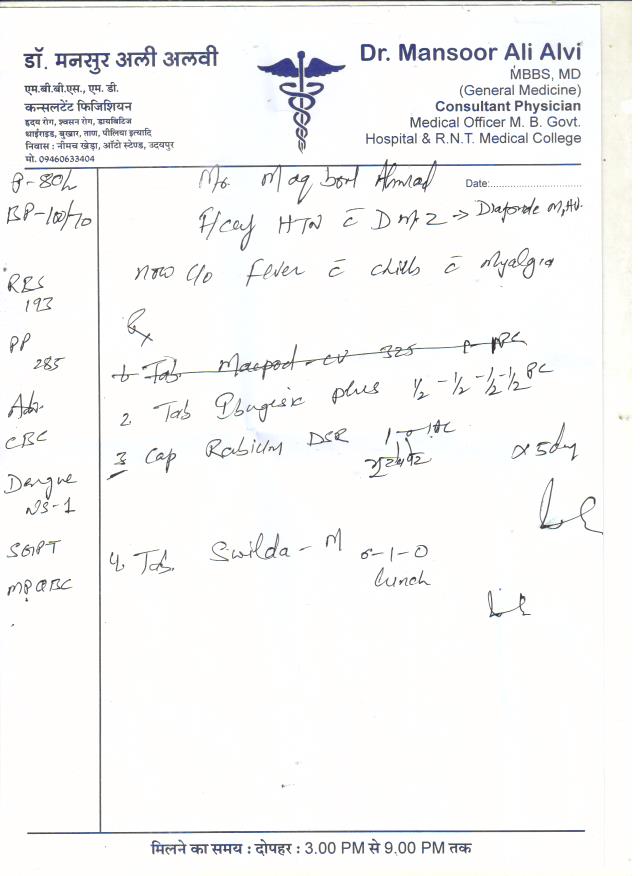 डॉ. मनसुर अली अलवी
एम.बी.बी.एस., एम. डी.
कन्सलटेंट फिजिशियन
हृदय रोग, श्वसन रोग, डायबिटिज
थाईराइड, बुखार, ताण, पीलिया इत्यादि
निवास : नीमच खेड़ा, ऑटो स्टेण्ड, उदयपुर
मो. 09460633404
Dr. Mansoor Ali Alvi
MBBS, MD
(General Medicine)
Consultant Physician
Medical Officer M. B. Govt.
Hospital & R.N.T. Medical College
Date:
BP-100/70
RBS
193
PP
285
Adv.
CBC
Dengue
NS-1
SGPT
Ahmad
HTN c̄ DM2 →
now c/o fever c̄ chills c̄ Myalgia
Rx
Tab. 325
2. Tab Ibugesic plus 1/2 - 1/2 - 1/2 - 1/2 PC
3 Cap Rabium DSR
x 5 day
4. Tab. Swilda - M 0-1-0
lunch
मिलने का समय : दोपहर : 3.00 PM से 9.00 PM तक